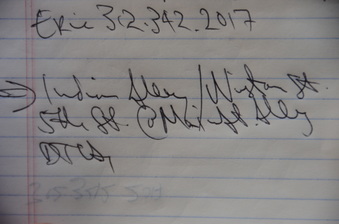 Eric 323.342.2017
→ Indian Alley / Winston St.
5th St. @ Main St. Alley
DTLA